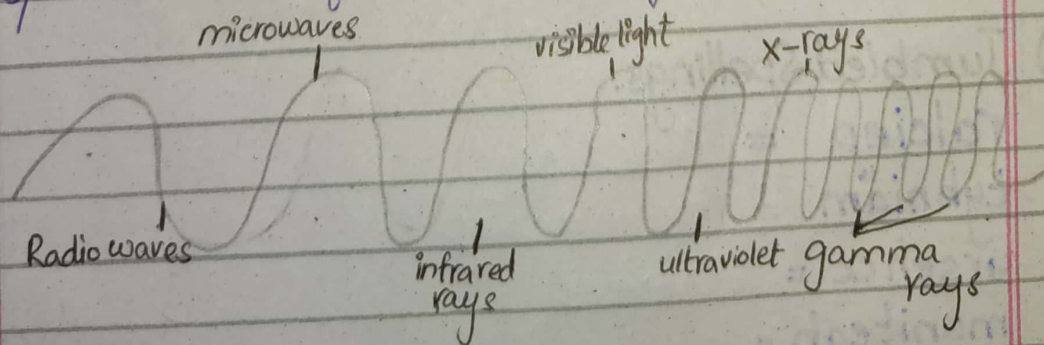 microwaves
visible light
x-rays
Radio waves
infrared
rays
ultraviolet
gamma
rays